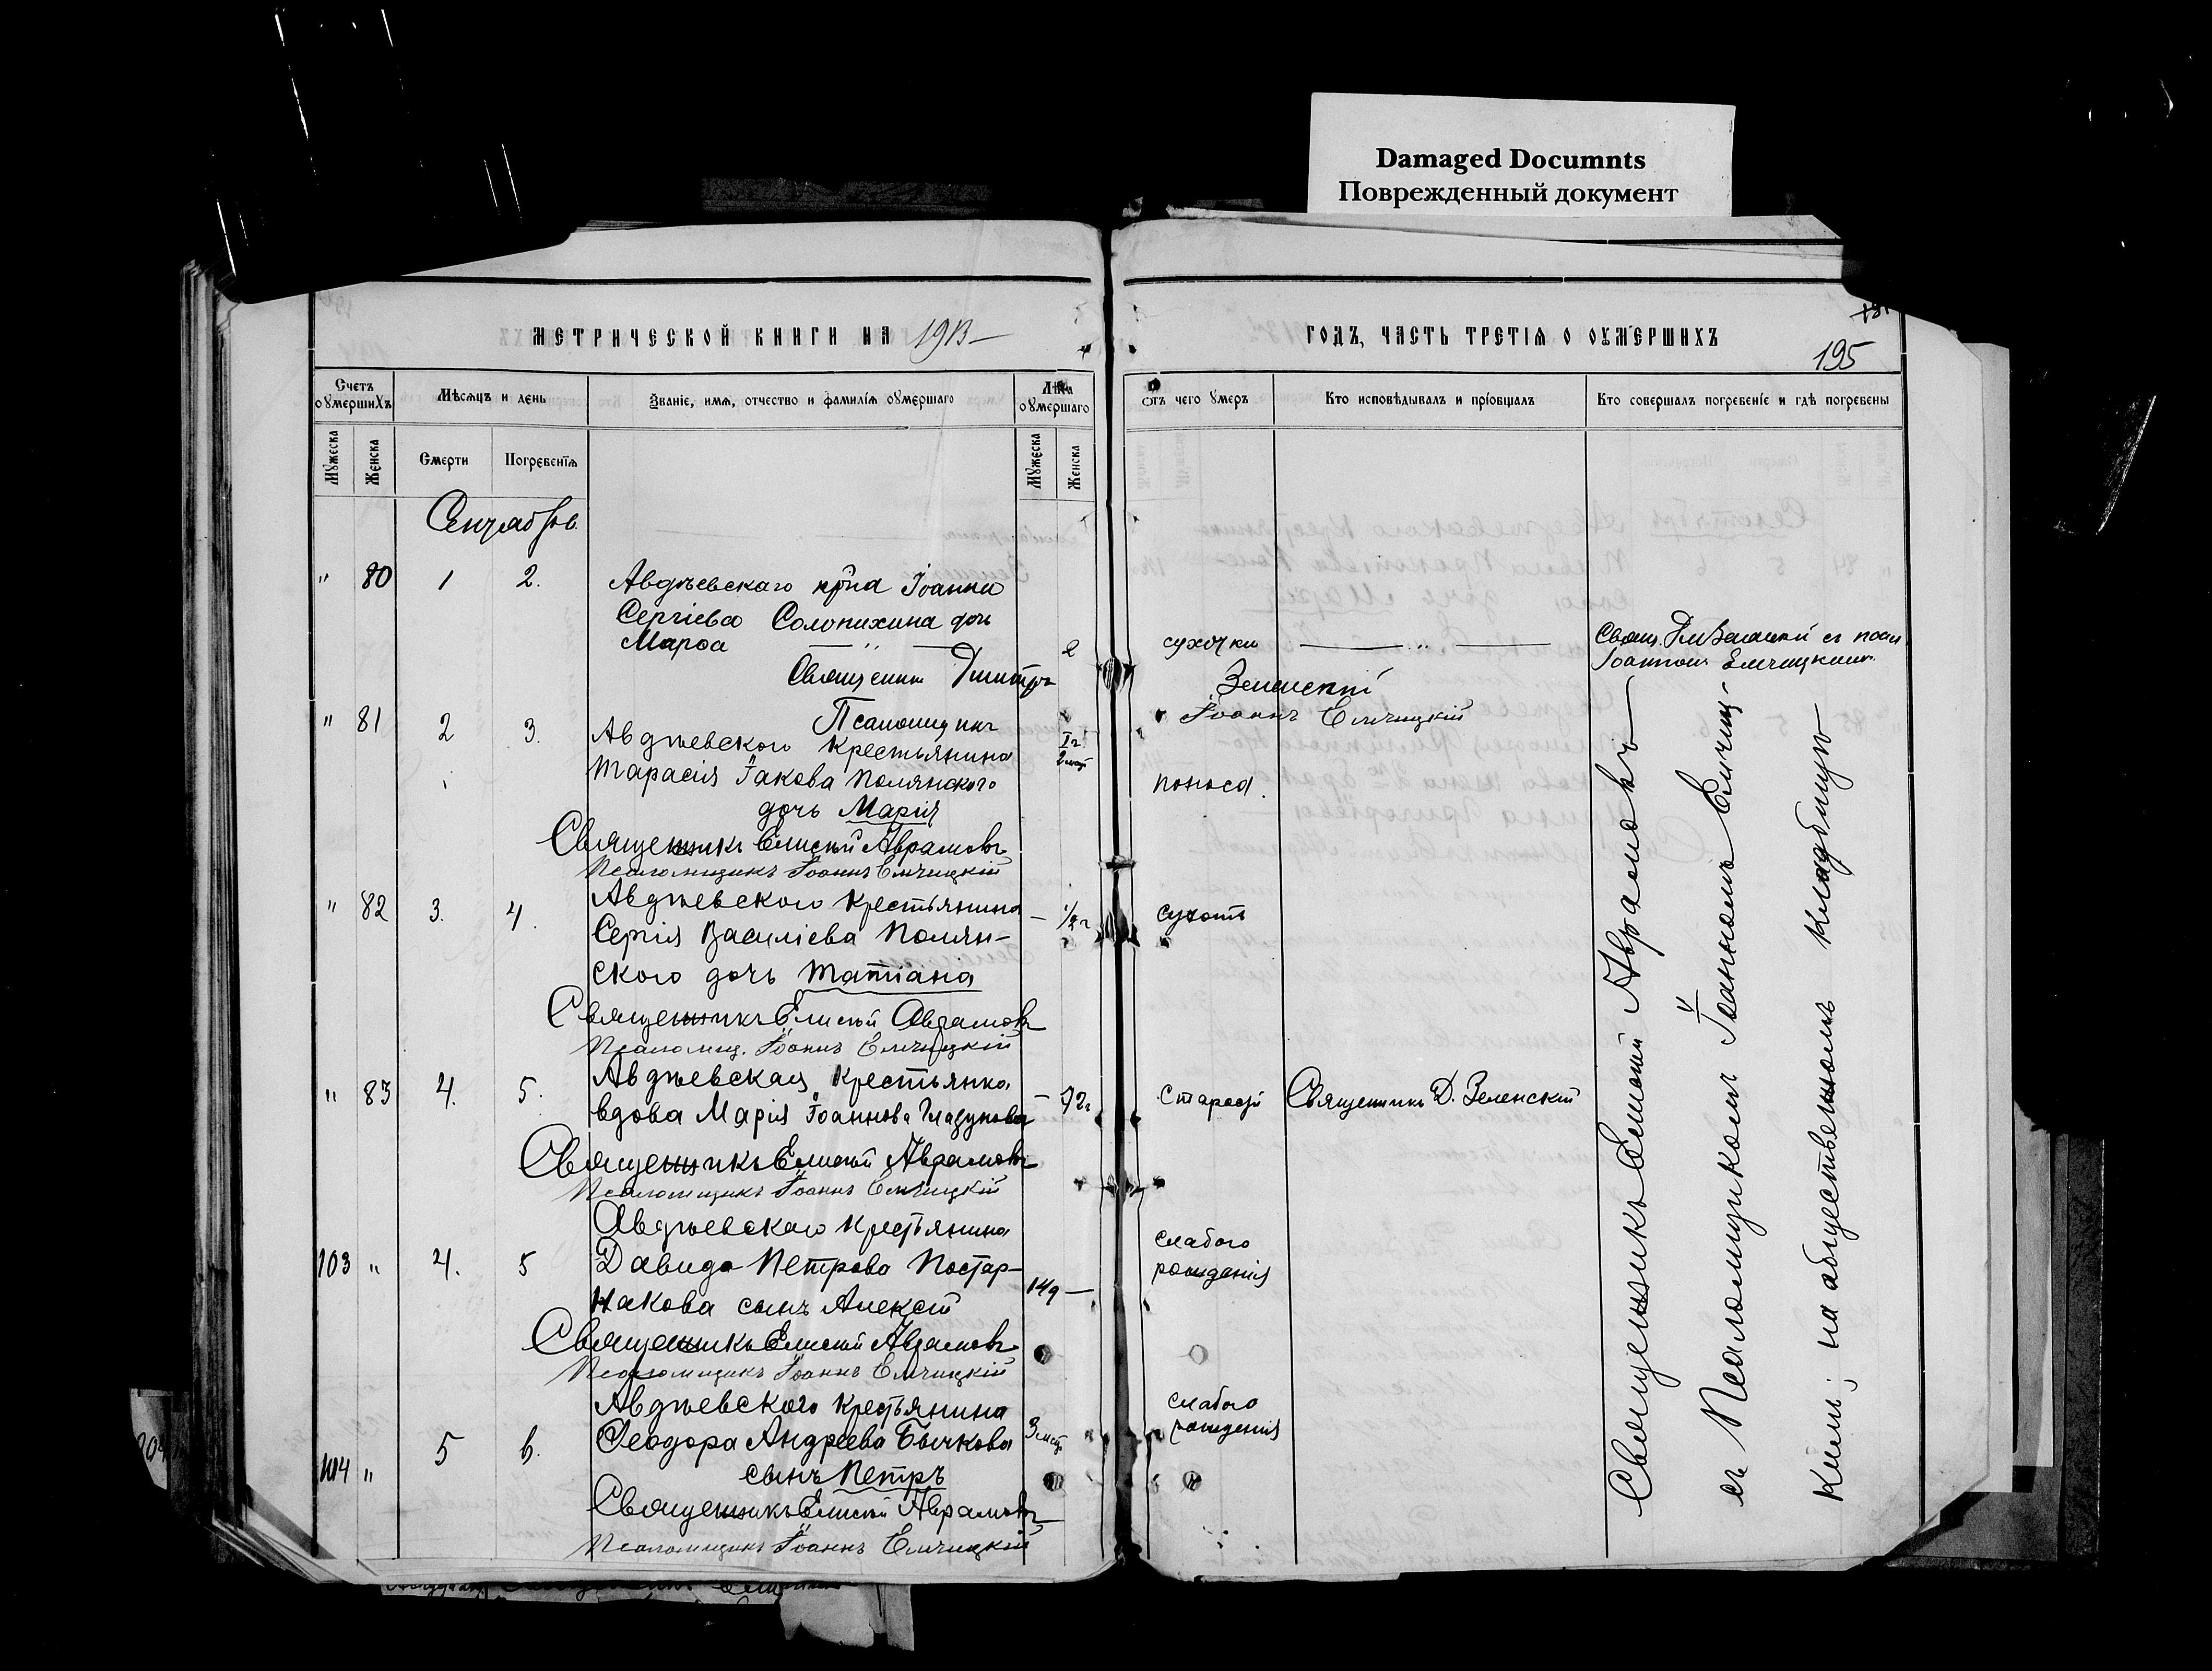 Damaged Documnts
Поврежденный документ
МЕТРИЧЕСКОЙ КНИГИ НА 1913
ГОДЪ, ЧАСТЬ ТРЕТІЯ О ОУМЕРШИХЪ
195
Счетъ оумершихъ
Мѣсяцъ и день
Званіе, имя, отчество и фамилія оумершаго
Лѣта оумершаго
Отъ чего умеръ
Кто исповѣдывалъ и пріобщалъ
Кто совершалъ погребеніе и гдѣ погребены
Мужеска
Женска
Смерти
Погребенія
Мужеска
Женска
Сентябрь.
" 80 1 2. Авдѣевскаго кр-на Іоанна
Сергіева Солопихина дочь
Марѳа — " — 2 сухотки — " — Свящ. Зеленскій съ псал
Іоанномъ Емчицкимъ.
Священникъ Димитрій Зеленскій
Псаломщикъ Іоаннъ Емчицкій
" 81 2 3. Авдѣевского Крестьянина 1 г 2 мѣс
Тарасія Іакова Полянского поноса.
дочь Марія
Священникъ Елисей Аврамовъ
Псаломщикъ Іоаннъ Емчицкій
" 82 3. 4. Авдѣевского Крестьянина — 1/2 г сухотъ
Сергія Василіева Полян-
ского дочь Татіана
Священникъ Елисей Аврамовъ
Псаломщ. Іоаннъ Емчицкій
" 83 4. 5. Авдѣевская Крестьянка — 72 г Старости Священникъ Д. Зеленскій
вдова Марія Іоаннова Гладунова
Священникъ Елисей Аврамовъ
Псаломщикъ Іоаннъ Емчицкій
Авдѣевскаго Крестьянина слабого
103 " 4. 5 Давида Петрова Постар- рожденія
накова сынъ Алексѣй 14 д —
Священникъ Елисей Аврамовъ
Псаломщикъ Іоаннъ Емчицкій
Авдѣевского Крестьянина слабого
104 " 5 6. Ѳеодора Андреева Бычкова 3 мѣс рожденія
сынъ Петръ
Священникъ Елисей Аврамовъ
Псаломщикъ Іоаннъ Емчицкій
Священникъ Елисей Аврамовъ
съ Псаломщикомъ Іоанномъ Емчиц-
кимъ; на общественномъ кладбищѣ